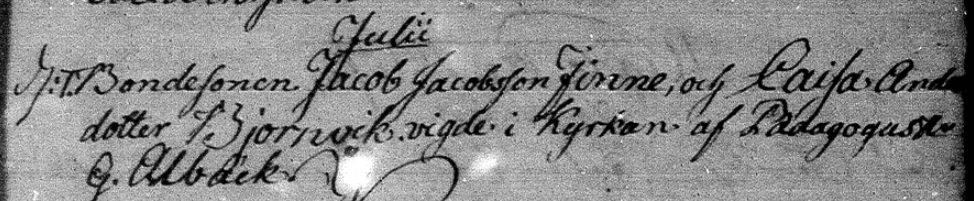 Julii
Bondesonen Jacob Jacobsson Finne, och Caisa And
dotter Bjornvik vigde i Kyrkan af Pædagogus
G. Albäck